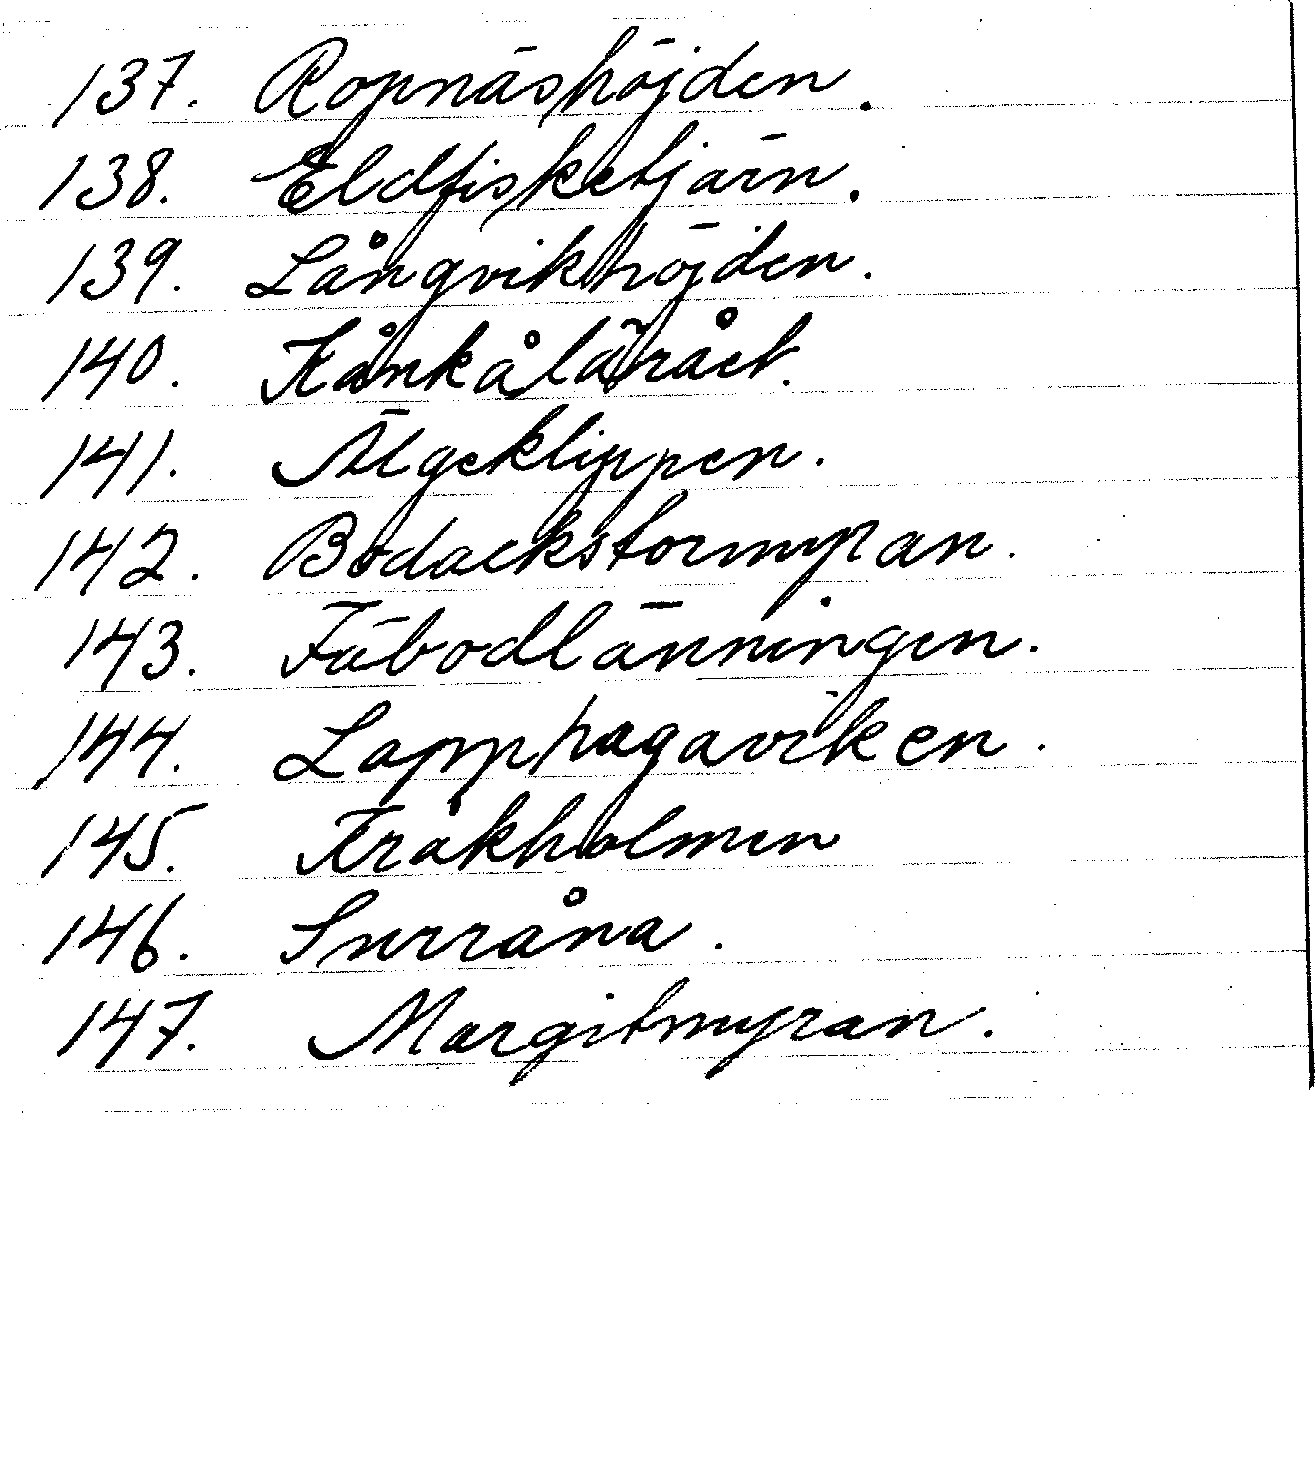 137. Ropnäshöjden.
138. Eldfisketjärn.
139. Långvikhöjden.
140. Kånkåläråct.
141. Älgeklippen.
142. Bodackstormyran.
143. Fäbodlänningen.
144. Lapphagaviken.
145. Kråkholmen
146. Snurråna.
147. Margitmyran.